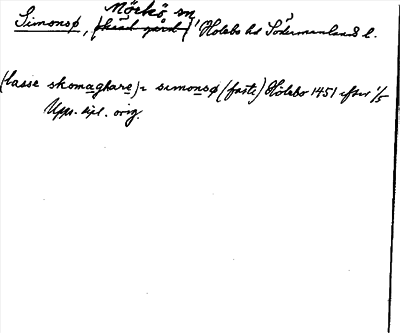 Mörkö sn
Simonsø, Holebo hd Södermanland l.
(lasse skomaghare) i simonsø (faste) Hölebo 1451 efter 1/5
Upps. dipl. orig.